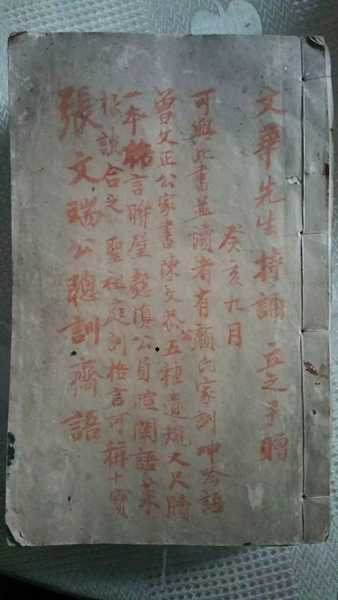 文華先生持誦 立之手贈
癸亥九月
可與此書並讀者有顏氏家訓呻吟語
曾文正公家書陳文恭公五種遺規又尺牘
一本格言聯璧慤慎公負暄閑語菜
根談合之聖祖庭訓格言可稱十寶
張文端公聰訓齋語